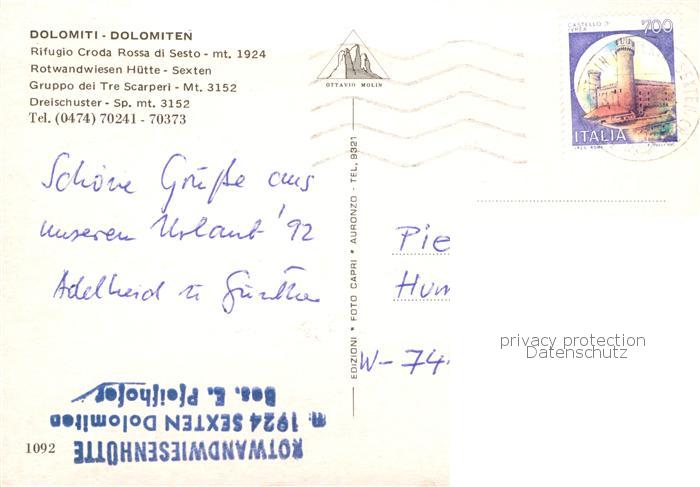 DOLOMITI - DOLOMITEN
Rifugio Croda Rossa di Sesto - mt. 1924
Rotwandwiesen Hütte - Sexten
Gruppo dei Tre Scarperi - Mt. 3152
Dreischuster - Sp. mt. 3152
Tel. (0474) 70241 - 70373
OTTAVIO MOLIN
CASTELLO D'IVREA
700
ITALIA
Schöne Grüße aus
unseren Urlaub '92
Adelheid u Günther
EDIZIONI * FOTO CAPRI * AURONZO - TEL. 9321
Pie
Hum
W-74
privacy protection
Datenschutz
ROTWANDWIESENHÜTTE
m. 1924 SEXTEN Dolomiten
Bes. E. Pfeifhofer
1092